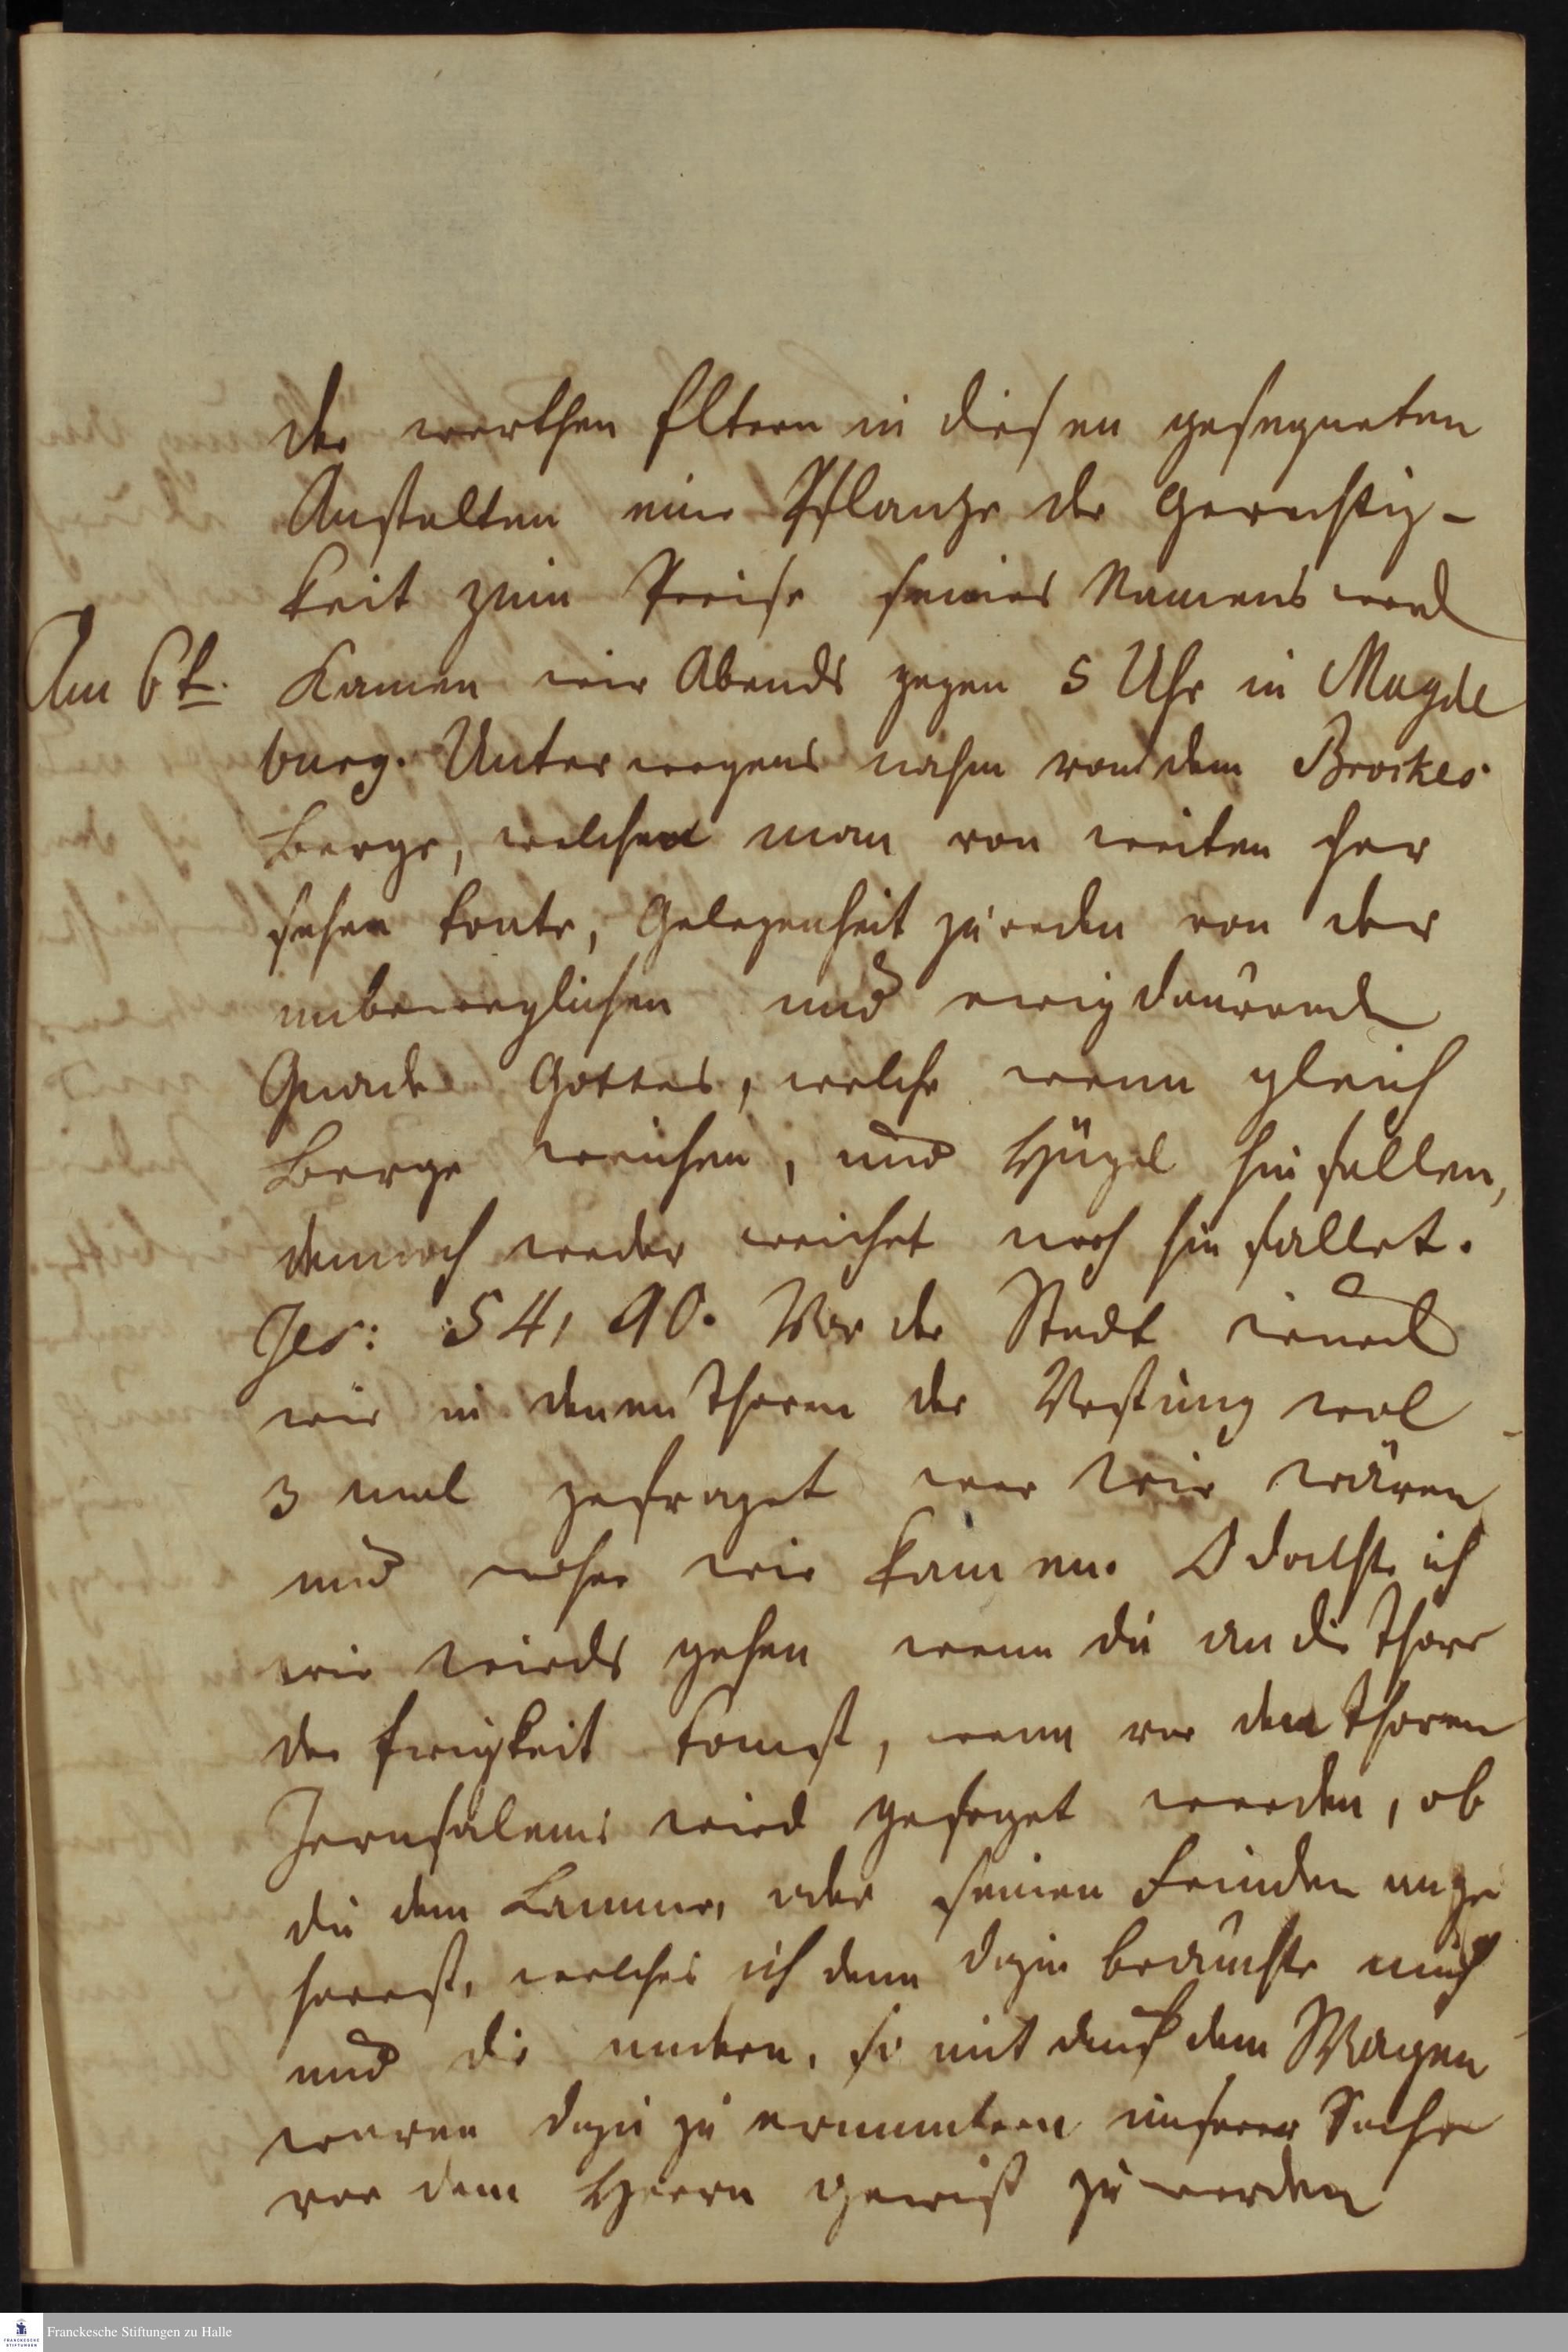 der werthen Eltern in diesen gesegneten
Anstalten eine Pflantze der Gerechtig-
keit zum Preise seines Namens werd
Am 6t. Kamen wir Abends gegen 5 Uhr in Magde
burg. Unterwegens nahm von dem Brockes
Berge, welchen man von weiten her
sehen konte, Gelegenheit zu reden von der
unbeweglichen und ewigdaurend
Gnade Gottes, welche wenn gleich
Berge weichen, und Hügel hinfallen,
dennoch weder weichet noch hinfallet.
Jes: 54, 10. Vor der Stadt wurd
wir in denen Thoren der Vestung wol
3 mal gefraget wer wir wären
und woher wir kamen. O dachte ich
wie wirds gehen wenn du an die Thore
der Ewigkeit komst, wenn vor den Thoren
Jerusalems wird gefraget werden, ob
du dem Lamme, oder seinen Feinden ange
hörest, welches ich denn dazu brauchte mich
und die andern, so mit auf dem Wagen
waren dazu zu ermuntern unserer Sache
vor dem Herrn gewiß zu werden
Franckesche Stiftungen zu Halle